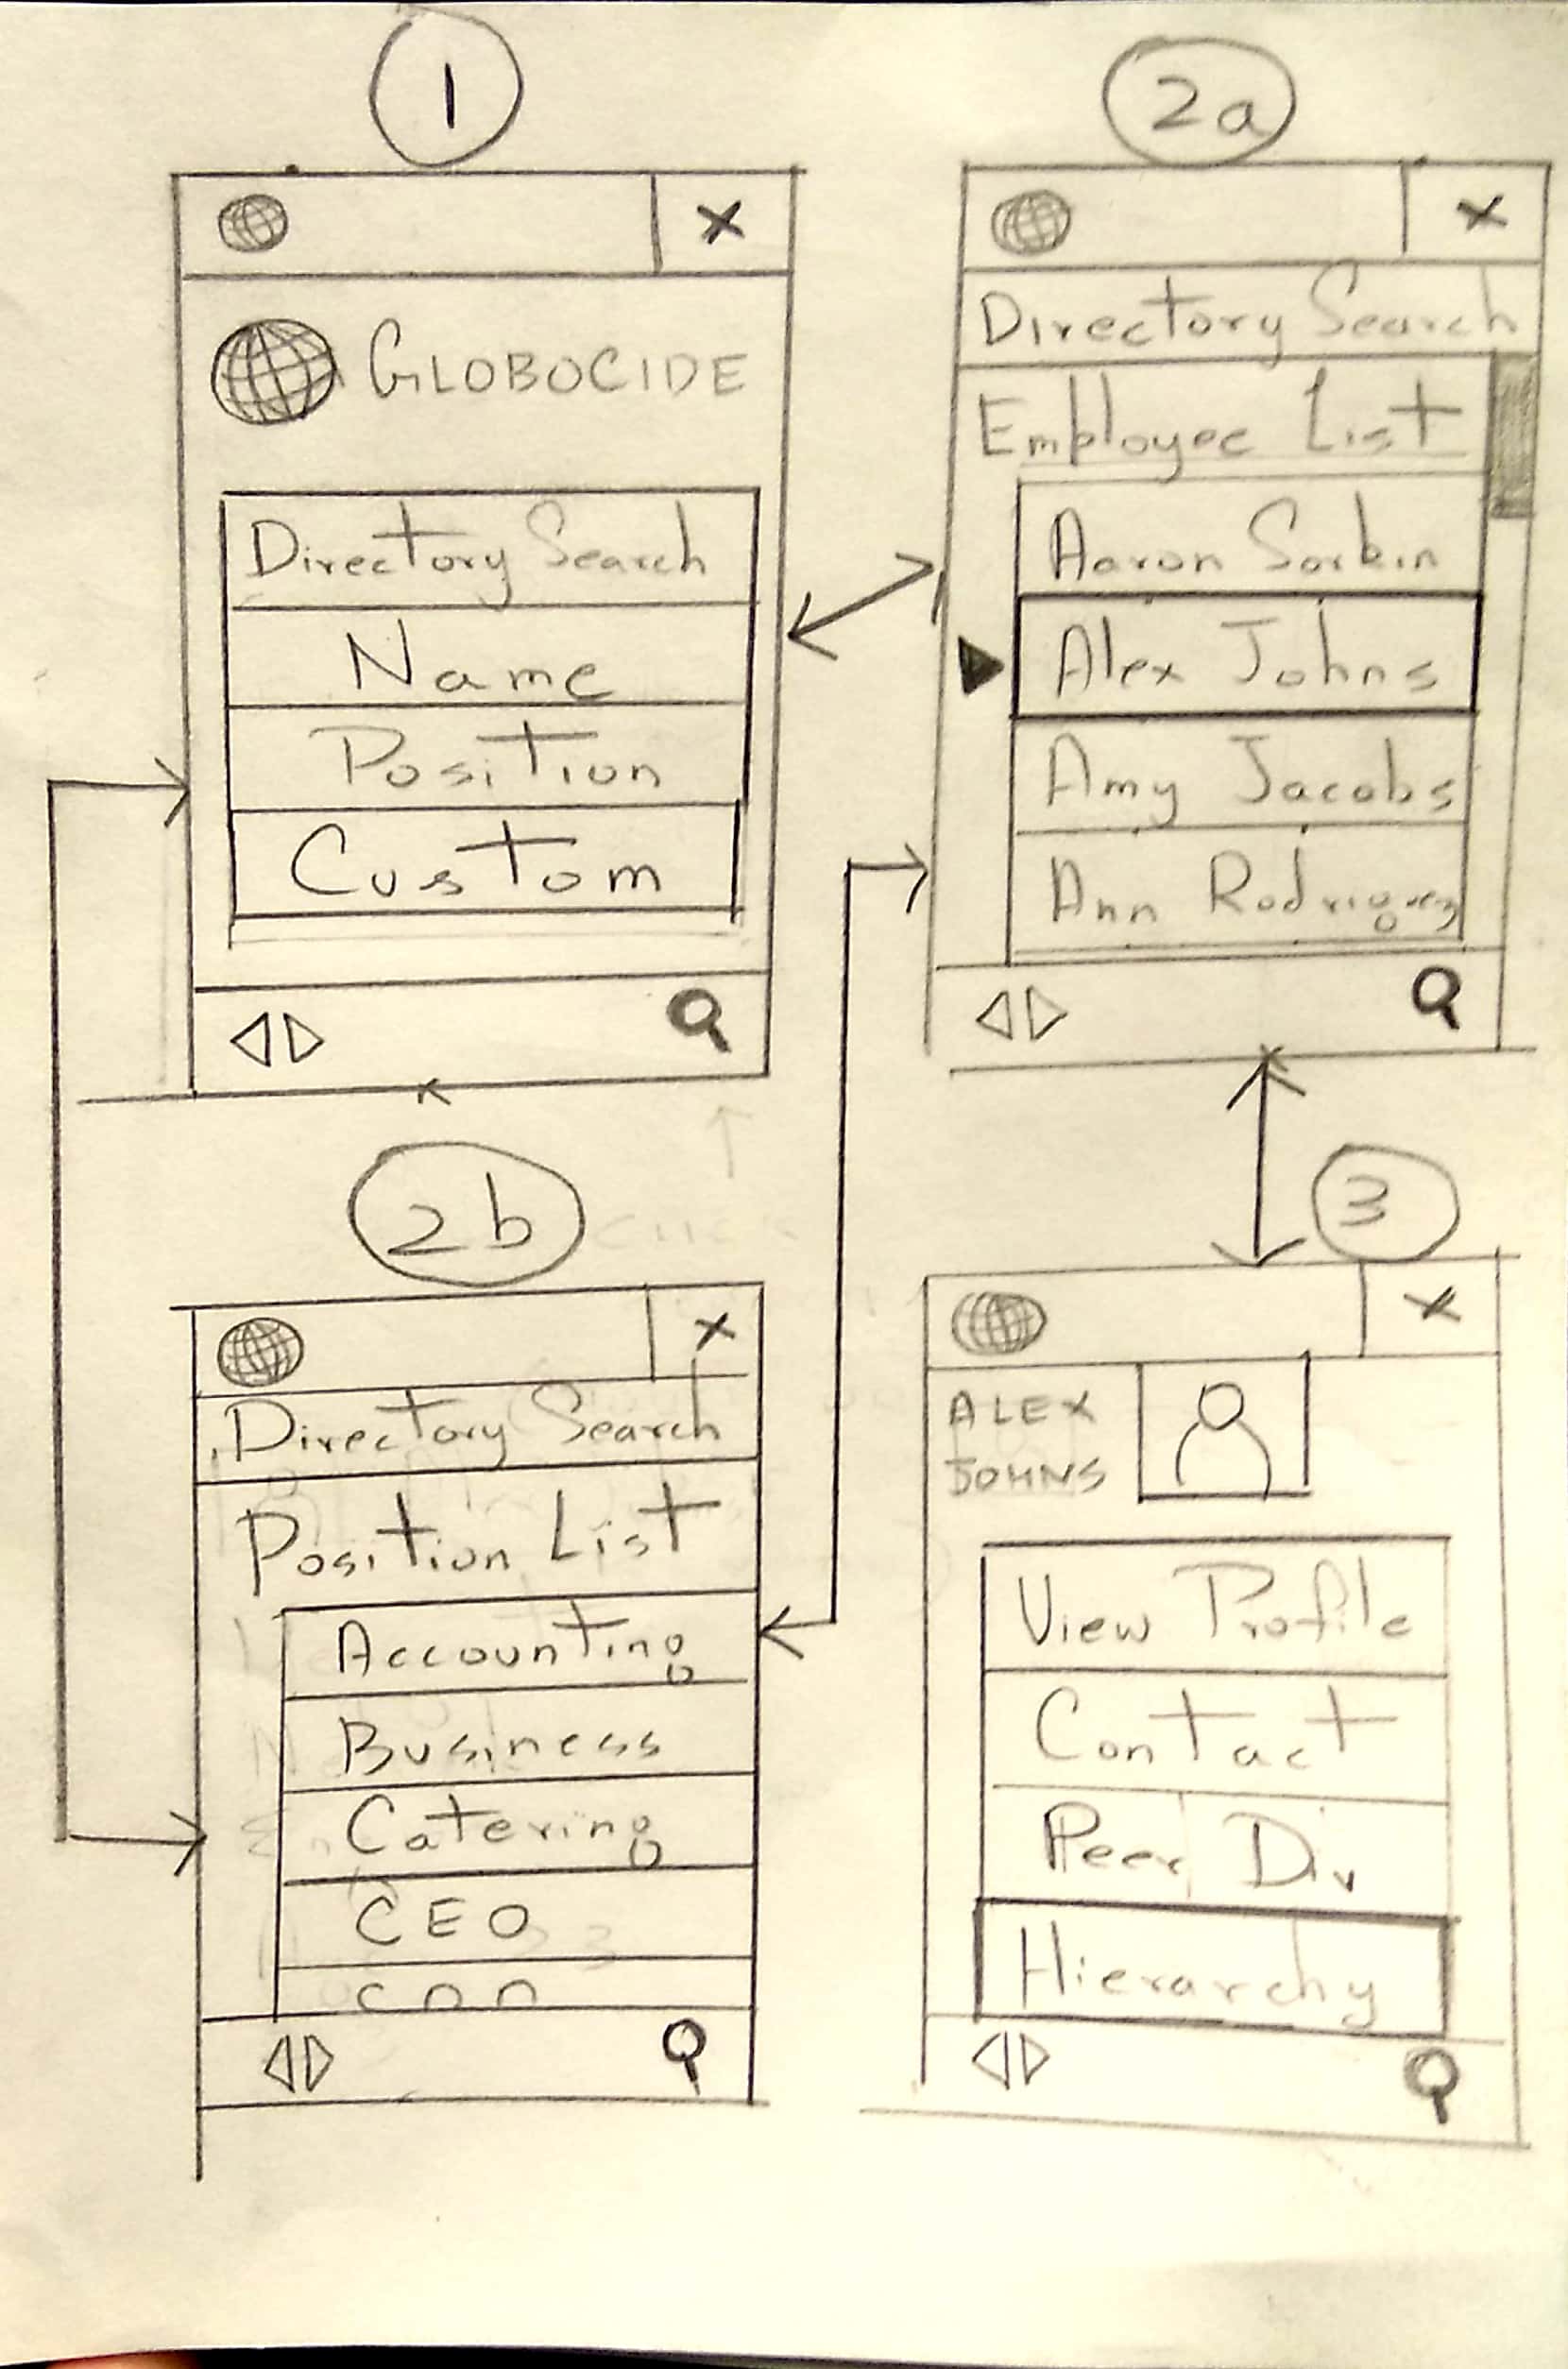 1
X
GLOBOCIDE
Directory Search
Name
Position
Custom
2a
X
Directory Search
Employee List
Aaron Sorkin
Alex Johns
Amy Jacobs
Ann Rodriguez
2b
X
Directory Search
Position List
Accounting
Business
Catering
CEO
3
X
ALEX
JOHNS
View Profile
Contact
Peer Div
Hierarchy